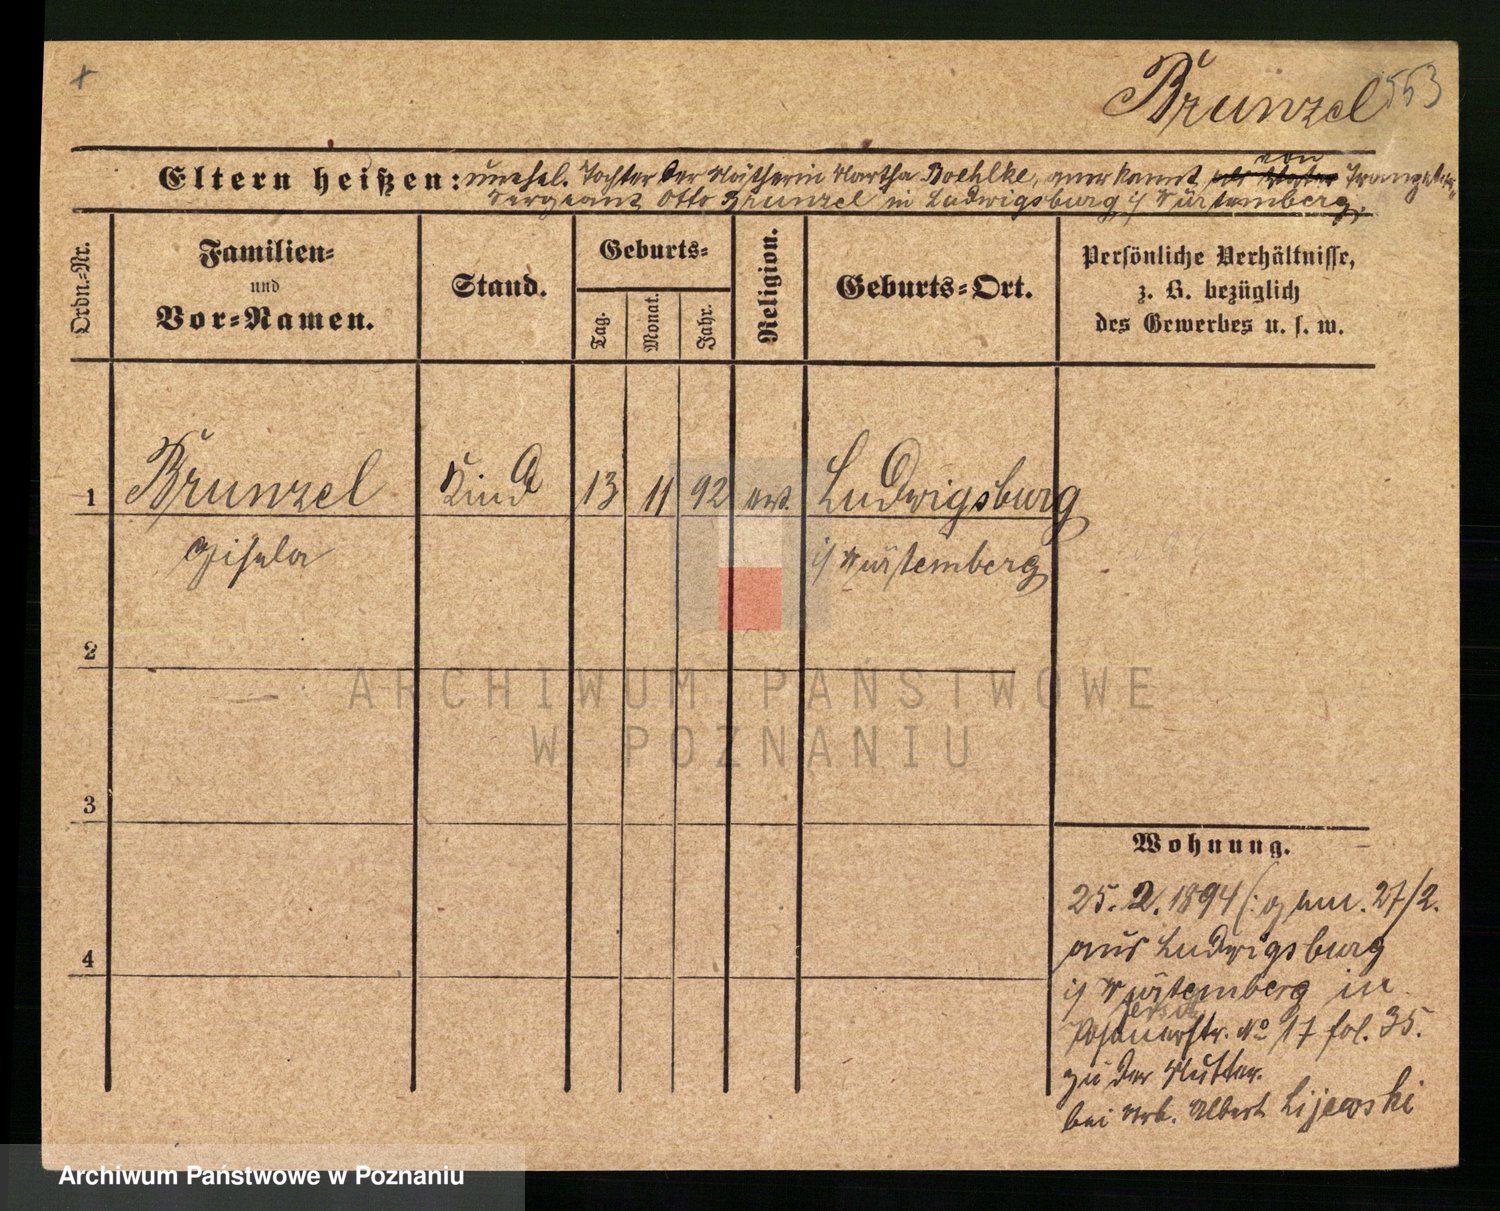 Brunzel 553
Eltern heißen: unehel. Tochter der Näherin Martha Boehlke, anerkannt von
Sergeant Otto Brunzel in Ludwigsburg i/ Würtemberg.
Ordn.-Nr.
Familien-
und
Vor-Namen.
Stand.
Geburts-
Tag.
Monat.
Jahr.
Religion.
Geburts-Ort.
Persönliche Verhältnisse,
z. B. bezüglich
des Gewerbes u. s. w.
1 Brunzel Kind 13 11 92 ev. Ludwigsburg
Gisela i/ Würtemberg
2
3
4
Wohnung.
25. 2. 1894 (: gem. 27/2.
aus Ludwigsburg
i/ Würtemberg in
Jersitz
Posenerstr. No 17 fol. 35.
zu der Mutter.
bei Arb. Albert Lijewski
ARCHIWUM PAŃSTWOWE
W POZNANIU
Archiwum Państwowe w Poznaniu